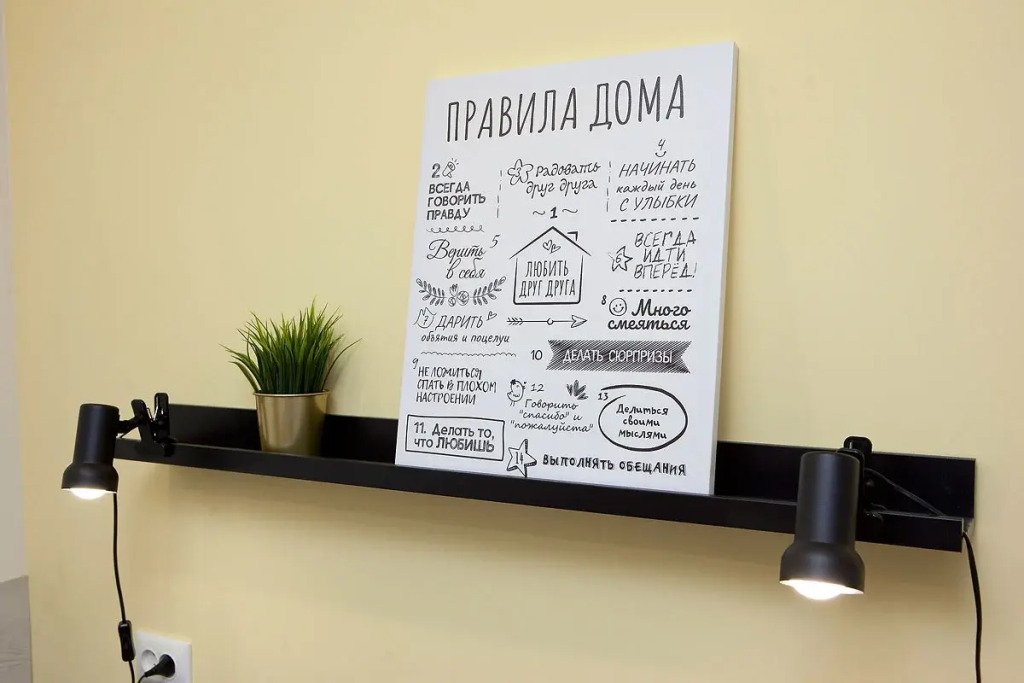 ПРАВИЛА ДОМА
2
ВСЕГДА
ГОВОРИТЬ
ПРАВДУ
3 Радовать
друг друга
4
НАЧИНАТЬ
каждый день
С УЛЫБКИ
~ 1 ~
ЛЮБИТЬ
ДРУГ ДРУГА
Верить 5
в себя
6
ВСЕГДА
ИДТИ
ВПЕРЁД!
7 ДАРИТЬ
объятия и поцелуи
8 Много
смеяться
9
НЕ ЛОЖИТЬСЯ
СПАТЬ В ПЛОХОМ
НАСТРОЕНИИ
10 ДЕЛАТЬ СЮРПРИЗЫ
11. Делать то,
что ЛЮБИШЬ
12
Говорить
"спасибо" и
"пожалуйста"
13
Делиться
своими
мыслями
14 ВЫПОЛНЯТЬ ОБЕЩАНИЯ